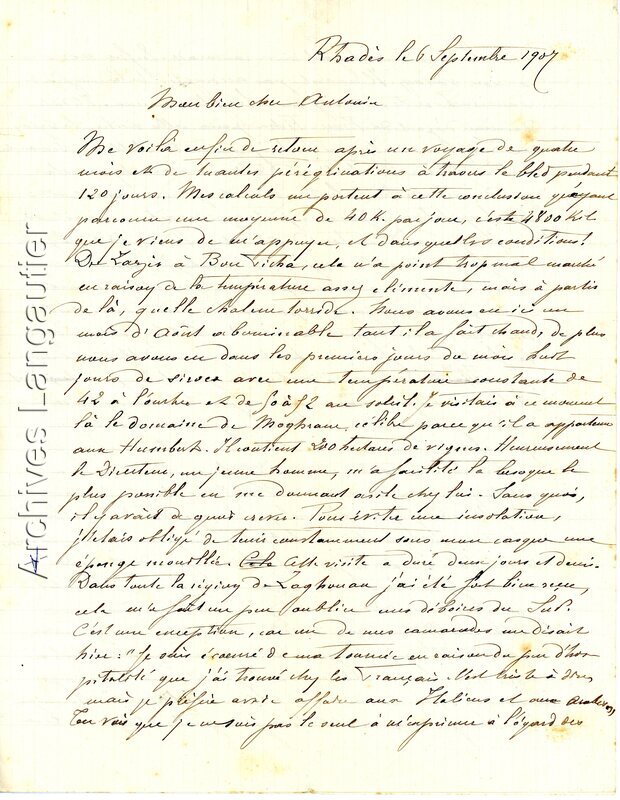 Rhadès le 6 Septembre 1907
Mon bien cher Antonin
Me voilà enfin de retour après un voyage de quatre
mois et de toutes pérégrinations à travers le bled pendant
120 jours. Mes calculs me portent à cette conclusion qu'ayant
parcouru une moyenne de 40 K. par jour, c'est 4800 Kil.
que je viens de m'appuyer, et dans quelles conditions!
De à Bou Ficha, cela n'a point trop mal marché
en raison de la température assez clémente, mais à partir
de là, quelle chaleur torride. Nous avons eu ici un
mois d'Août abominable tant il a fait chaud, de plus
nous avons eu dans les premiers jours du mois huit
jours de siroco avec une température constante de
42 à l'ombre et de 50 à 52 au soleil. Je visitais à ce moment
là le domaine de Moghrane, célèbre parce qu'il a appartenu
aux Humbert. Il contient 200 hectares de vignes. Heureusement
le Directeur, un jeune homme, m'a facilité la besogne le
plus possible en me donnant asile chez lui. Sans quoi,
il y avait de quoi crever. Pour éviter une insolation,
j'étais obligé de tenir constamment sous mon casque une
éponge mouillée. Cette visite a duré deux jours et demi.
Dans toute la région de Zaghouan j'ai été fort bien reçu,
cela m'a fait un peu oublier mes déboires du Sud.
C'est une exception, car un de mes camarades me disait
hier: "Je suis écœuré de ma tournée en raison du peu d'hos
pitalité que j'ai trouvé chez les Français. C'est triste à dire
mais je préfère avoir affaire aux Italiens et aux arabes"
Tu vois que je ne suis pas le seul à m'exprimer à l'égard des
Archives Langautier